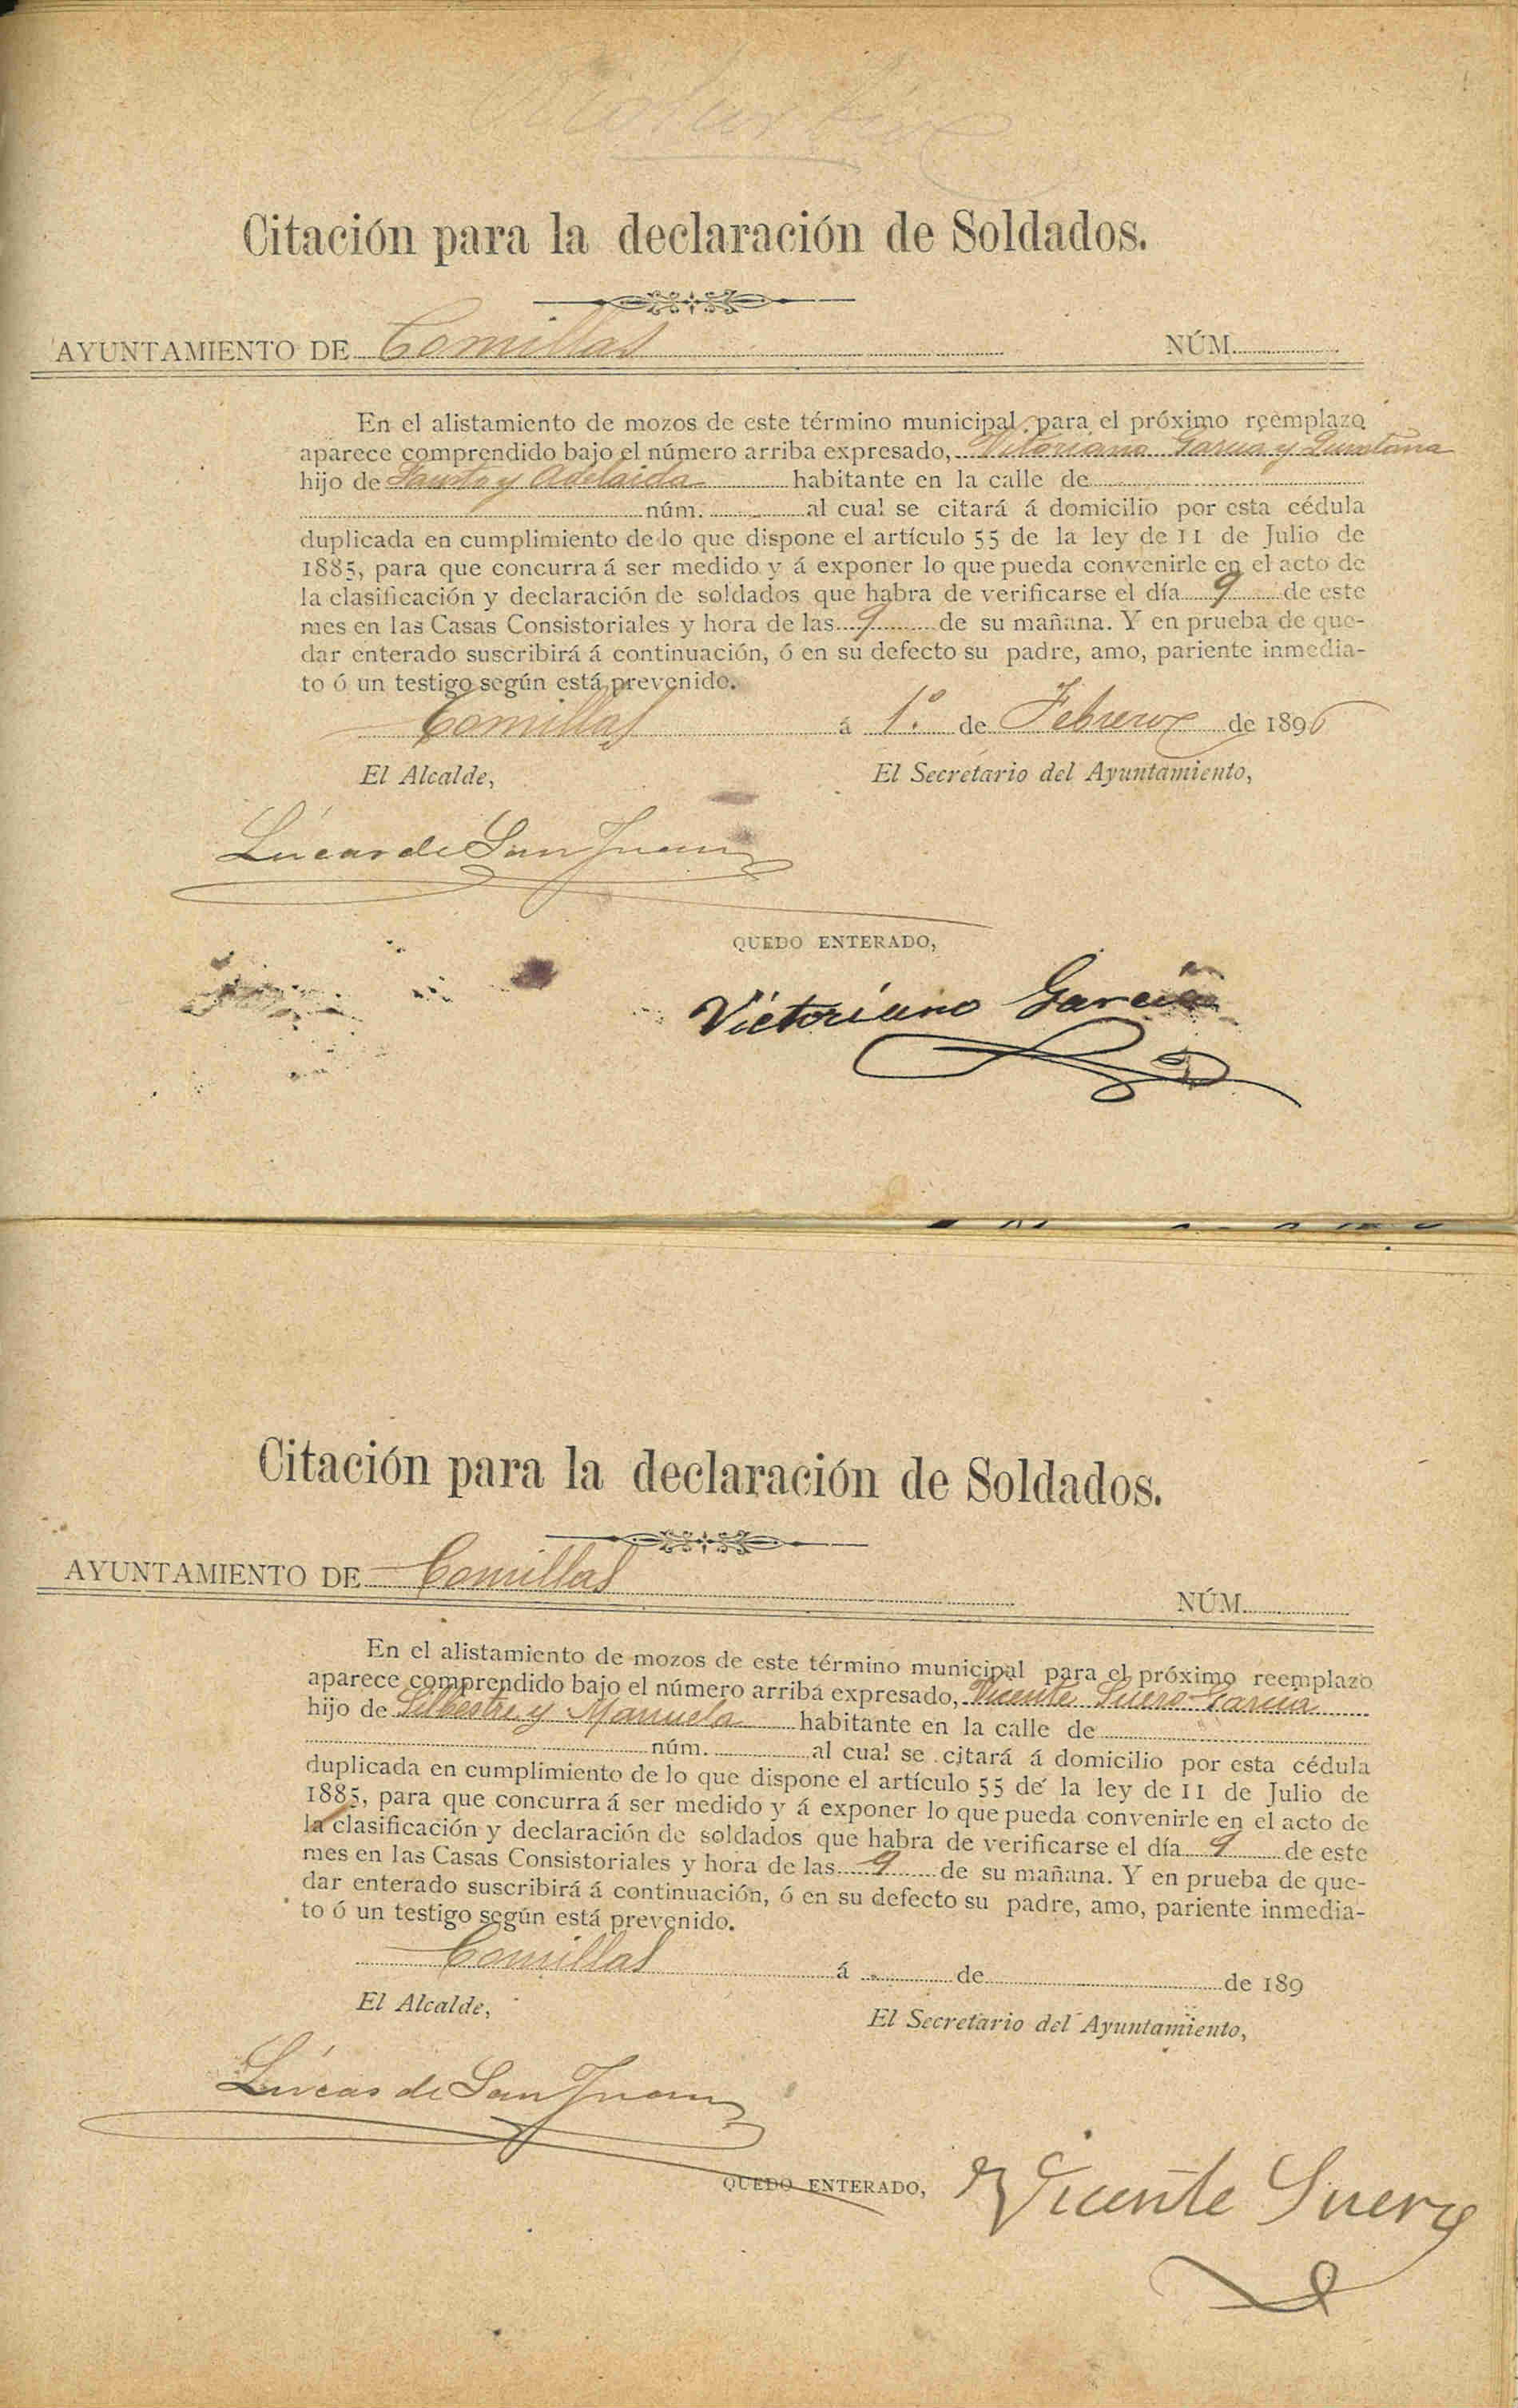 Citación para la declaración de Soldados.
AYUNTAMIENTO DE Comillas NÚM.
En el alistamiento de mozos de este término municipal para el próximo reemplazo
aparece comprendido bajo el número arriba expresado, Vitoriano Garcia y Quintana
hijo de Fausto y Adelaida habitante en la calle de
núm. al cual se citará á domicilio por esta cédula
duplicada en cumplimiento de lo que dispone el artículo 55 de la ley de 11 de Julio de
1885, para que concurra á ser medido y á exponer lo que pueda convenirle en el acto de
la clasificación y declaración de soldados que habra de verificarse el día 9 de este
mes en las Casas Consistoriales y hora de las 9 de su mañana. Y en prueba de que-
dar enterado suscribirá á continuación, ó en su defecto su padre, amo, pariente inmedia-
to ó un testigo según está prevenido.
Comillas á 1.º de Febrero de 1896
El Alcalde, El Secretario del Ayuntamiento,
Lúcas de San Juan
QUEDO ENTERADO,
Victoriano Garcia
Citación para la declaración de Soldados.
AYUNTAMIENTO DE Comillas NÚM.
En el alistamiento de mozos de este término municipal para el próximo reemplazo
aparece comprendido bajo el número arriba expresado, Vicente Suero Garcia
hijo de Silbestre y Manuela habitante en la calle de
núm. al cual se citará á domicilio por esta cédula
duplicada en cumplimiento de lo que dispone el artículo 55 de la ley de 11 de Julio de
1885, para que concurra á ser medido y á exponer lo que pueda convenirle en el acto de
la clasificación y declaración de soldados que habra de verificarse el día 9 de este
mes en las Casas Consistoriales y hora de las 9 de su mañana. Y en prueba de que-
dar enterado suscribirá á continuación, ó en su defecto su padre, amo, pariente inmedia-
to ó un testigo según está prevenido.
Comillas á de de 189
El Alcalde, El Secretario del Ayuntamiento,
Lúcas de San Juan
QUEDO ENTERADO, Vicente Suero